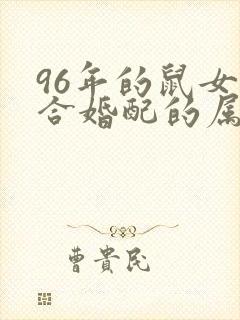 96年的鼠女
合婚配的属
曹貴民